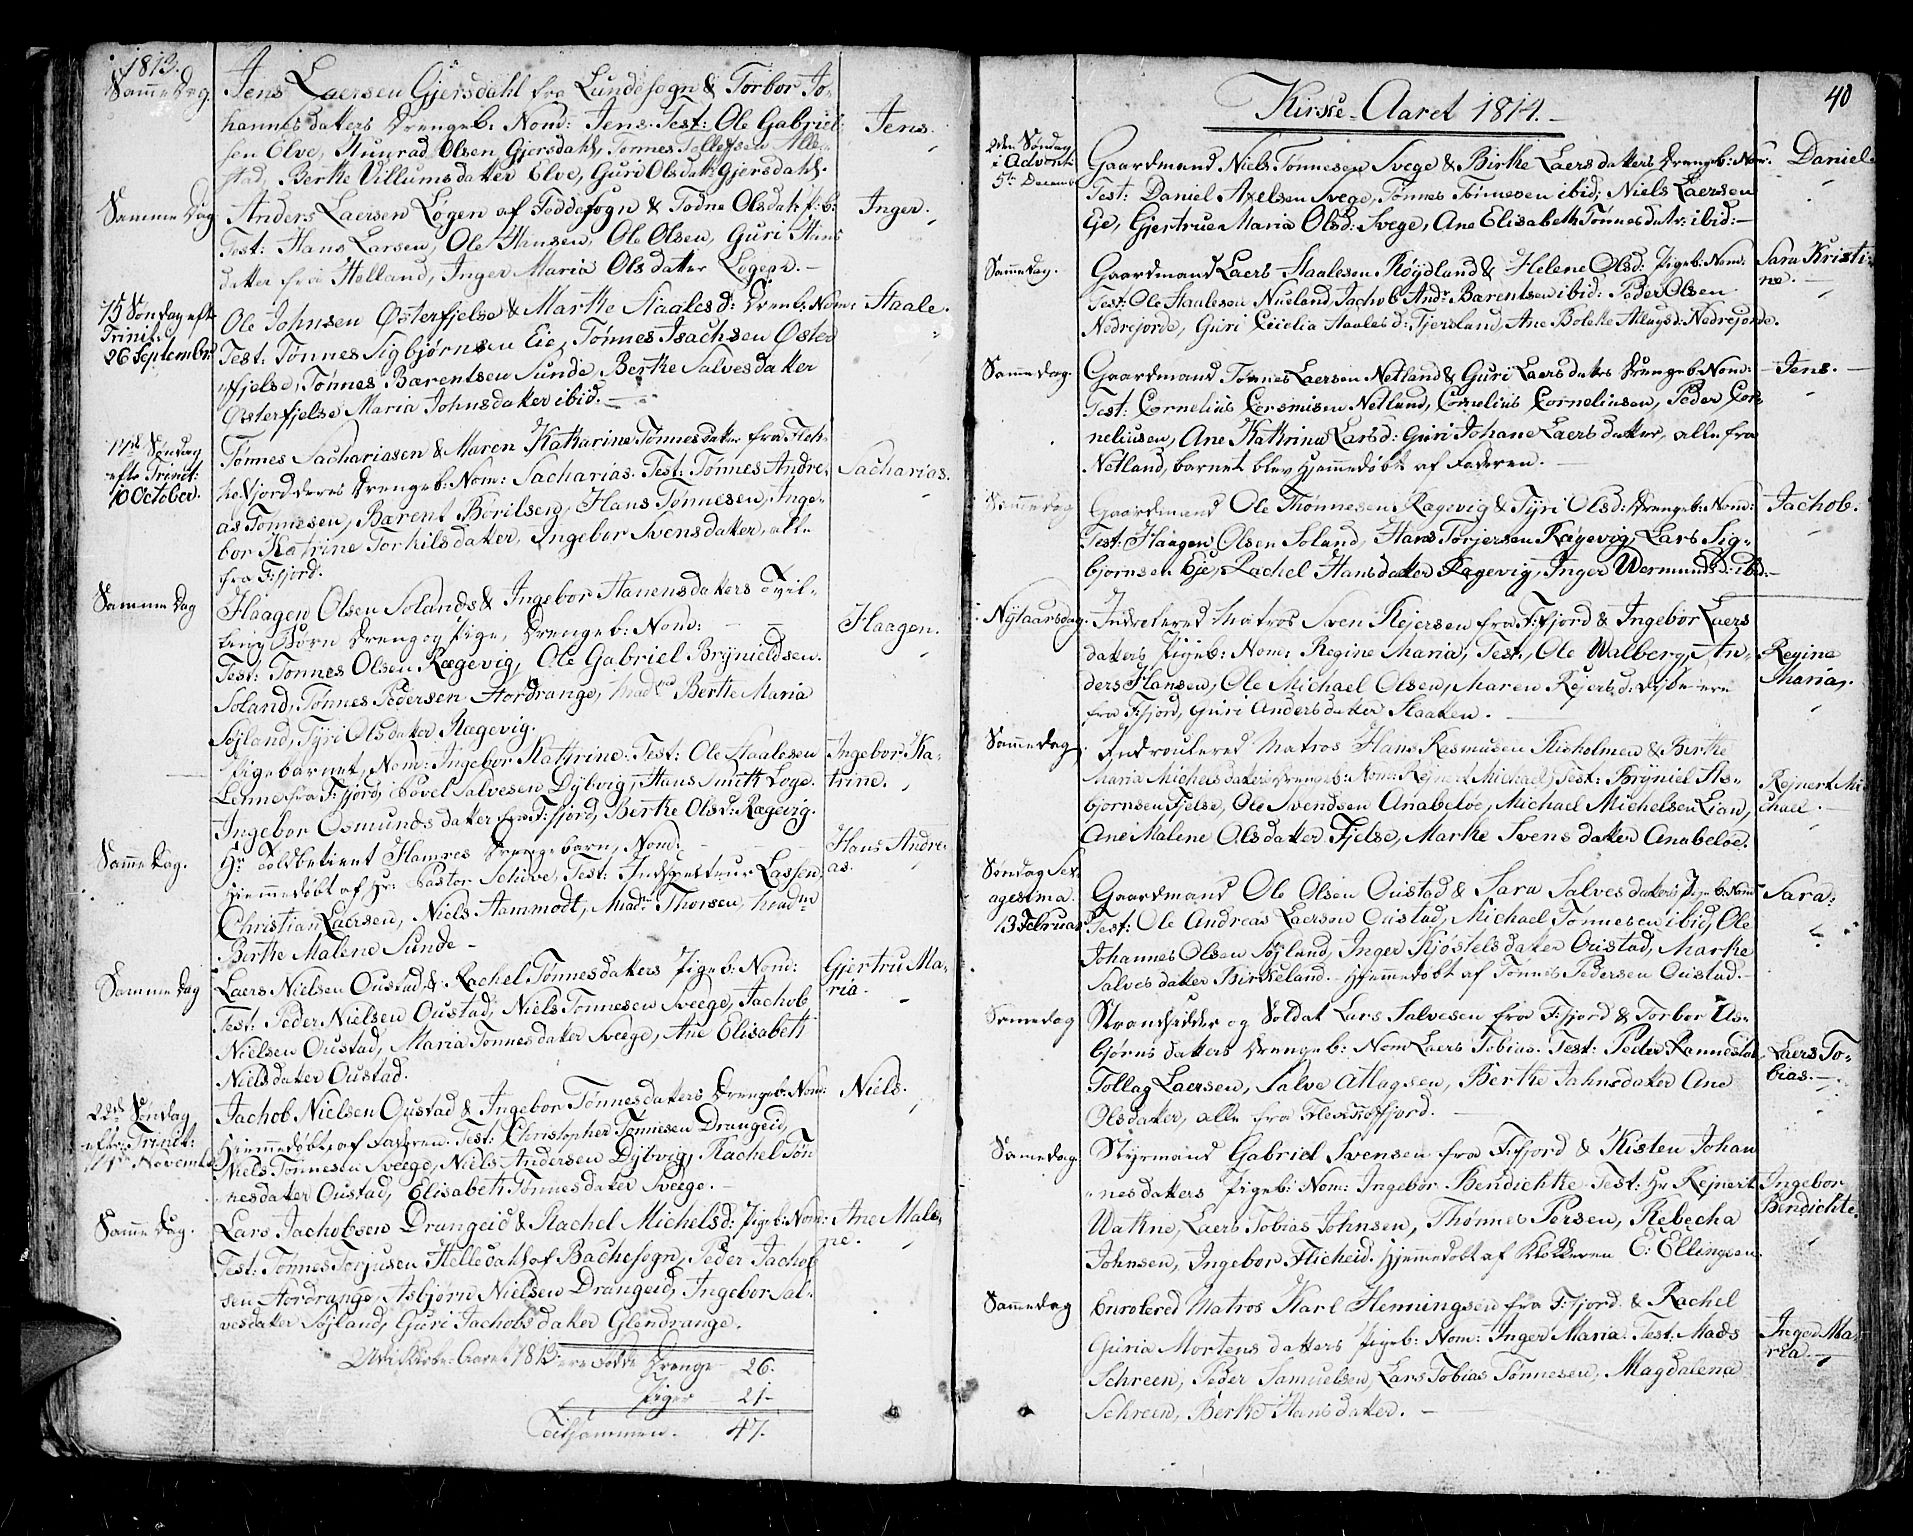 1813.
Samme Dag.
Jens Laersen Gjersdahl fra Lundesogn & Torbor Jo-
hannesdatters Drengeb: Nom: Jens. Test: Ole Gabriel-
Jens.
sen Elve, Olsen Gjersdahl, Tønnes Tollefsen Alle-
stad, Berthe Villumsdatter Elve, Guri Olsdatr Gjersdahl.
Samme Dag
Anders Laersen Løgen af Foddesogn & Todne Olsdatr: p:b:
Inger.
Test: Hans Larsen, Ole Hansen, Ole Olsen, Guri Hans
datter fra Helland, Inger Maria Olsdatter Løgen.
15 Søndag eft
Trinit:
26 September
Ole Johnsen Østerfjelse & Marthe Staalesd: Drenb: Nom:
Staale.
Test: Tønnes Sigbjørnsen Eie, Tønnes Isachsen Øster
fjelse, Tønnes Barentsen Sunde, Berthe Salvesdatter
Østerfjelse Maria Johnsdatter ibid.
17de Søndag
efter Trinit:
10 October.
Tønnes Sachariasen & Maren Katharine Tønnesdatter fra Flek-
kefjord deres Drengeb: Nom: Sacharias. Test: Tønnes Andre-
Sacharias.
as Tønnesen, Barent Børilsen, Hans Tønnesen, Inge-
bor Katrine Torkilsdatter, Ingebor Svensdatter, alle
fra F:fjord.
Samme Dag
Haagen Olsen Solands & Ingebor Hanensdatters Tvil-
ling Børn Dreng og Pige, Drengeb: Nom:
Haagen.
Test: Tønnes Olsen Rægevig, Ole Gabriel Brynieldsen
Soland, Tønnes Pedersen Hordrange, Mad: Berthe Maria
Søjland, Tyri Olsdatter Rægevig.
Pigebarnet, Nom: Ingebor Kathrine. Test: Ole Staalesen
Ingebor Ka-
trine.
Lenne fra F:fjord, Povel Salvesen Dybvig, Hans Smith Loge
Ingebor Osmundsdatter fra F:fjord, Berthe Olsd: Rægevig.
Samme Dag.
Hr Toldbetient Hamres Drengebarn, Nom:
Hans Andre-
as.
Hjemmedøbt af Hr: Pastor Schive, Test: Indspecteur Lassen,
Christian Laersen, Niels Aammodt, Madm Thorsen, Madm
Berthe Malene Sunde
Samme Dag
Laers Nielsen Oustad & Rachel Tønnesdatters Pigeb: Nom:
Gjertru Ma-
ria.
Test: Peder Nielsen Oustad, Niels Tønnesen Sveege, Jachob
Nielsen Oustad, Maria Tønnesdatter Sveege, Ane Elisabeth
Nielsdatter Oustad.
22de Søndag
efter Trinit:
Novemb.
Jachob Nielsen Oustad & Ingebor Tønnesdatters Drengeb: Nom:
Niels.
Hjemmedøbt af Faderen. Test: Christopher Tønnesen Drangeid,
Niels Tønnesen Sveege, Niels Andersen Dybvig, Rachel Tøn
nesdatter Oustad, Elisabeth Tønnesdatter Sveege.
Samme Dag.
Lars Jachobsen Drangeid & Rachel Michelsd: Pigeb: Nom:
Ane Male-
ne.
Test: Tønnes Torjusen Helledahl af Bachesogn, Peder Jachob
sen Hordrange, Asbjørn Nielsen Drangeid, Ingebor Sal-
vesdatter Søjland, Guri Jachobsdatter Glendrange.
Udi Kirke-Aaret 1813 ere Fødde Drenge 26.
Piger 21
Tilsammen. 47.
40
Kirke-Aaret 1814.
2den Søndag
i Advent
5te December
Gaardmand Niels Tønnesen Svege & Birthe Laersdatters Drengeb: Nom:
Daniel.
Test: Daniel Axelsen Svege, Tønnes Tønnesen ibid: Niels Laersen
Eje, Gjertrue Maria Olsd: Svege, Ane Elisabeth Tønnesdatr: ibid:
Samme Dag.
Gaardmand Laers Staalesen Røjsland & Helene Olsd: Pigeb: Nom:
Sara Kristi-
ne.
Test: Ole Staalesen Nueland, Jachob Andr Barentsen ibid: Peder Olsen
Nedrejorde, Guri Cicelia Staalesd: Fjersland, Ane Bolette Atlagsd: Nedrejorde.
Samme Dag.
Gaardmand Tønnes Laersen Netland & Guri Laersdatrs Drengeb: Nom:
Jens.
Test: Cornelius Corsmisen Netland, Cornelius Corneliusen, Peder Cor-
neliusen, Ane Kathrina Larsd: Guri Johane Laersdatter, alle fra
Netland, barnet blev hjemmedøbt af Faderen.
Samme Dag
Gaardmand Ole Thønnesen Rægevig & Tyri Olsd: Drengeb: Nom:
Jachob.
Test: Haagen Olsen Soland, Hans Torjersen Rægevig, Lars Sig-
bjørnsen Eje, Rachel Hansdatter Rægevig, Inger Wermundsd: ibid:
Nytaarsdag.
Indrolered Matros Sven Rejersen fra F:fjord & Ingebor Laers
datters Pigeb: Nom: Regine Maria, Test: Ole Walberg, An-
Regine
Maria.
ders Hansen, Ole Michael Olsen, Maren Rejersd: Disse ere
fra F:fjord, Guri Andersdatter Staaken.
Samme Dag.
Indroulered Matros Hans Rasmusen Kisholmen & Birthe
Maria Michelsdatters Drengeb: Nom: Rejnert Michael, Test: Bryniel As-
Rejnert Mi
chael.
bjørnsen Fjelse, Ole Svendsen Anabeløe, Michael Michelsen Lian,
Ane Malene Olsdatter Fjelse, Marthe Svensdatter Anabeløe.
Søndag Sex
agesima
13 Februar
Gaardmand Ole Olsen Oustad & Sara Salvesdatters Pigeb: Nom:
Sara.
Test: Ole Andreas Laersen Oustad, Michael Tønnesen ibid, Ole
Johannes Olsen Søjland, Inger Kjøstelsdatter Oustad, Marthe
Salvesdatter Birkeland. Hjemmedøbt af Tønnes Pedersen Oustad.
Samme dag
Strandsidder og Soldat Lars Salvesen fra F:fjord & Torbor As-
bjørnsdatters Drengeb: Nom Laers Tobias. Test: Peder Rannestad,
Laers To-
bias.
Tollag Laersen, Salve Atlagsen, Berthe Jahnsdatter Ane
Olsdatter, alle fra Flekkefjord.
Samme dag.
Styrmand Gabriel Svensen fra F:fjord & Kisten Johan
nesdatters Pigeb: Nom: Ingebor Bendichtke Test: Hr Rejnert
Ingebor
Bendichte.
Wathne, Laers Tobias Johnsen, Thønnes Persen, Rebecha
Johnsen, Ingebor Flicheid. Hjemmedøbt af Klokkeren E: Ellingsen.
Samme dag
Enrolered Matros Karl Henningsen fra F:fjord & Rachel
Guria Mortensdatters Pigeb: Nom: Inger Maria. Test: Mads
Inger Ma-
ria.
Schreen, Peder Samuelsen, Lars Tobias Tønnesen, Magdalena
Schreen, Berthe Hansdatter.